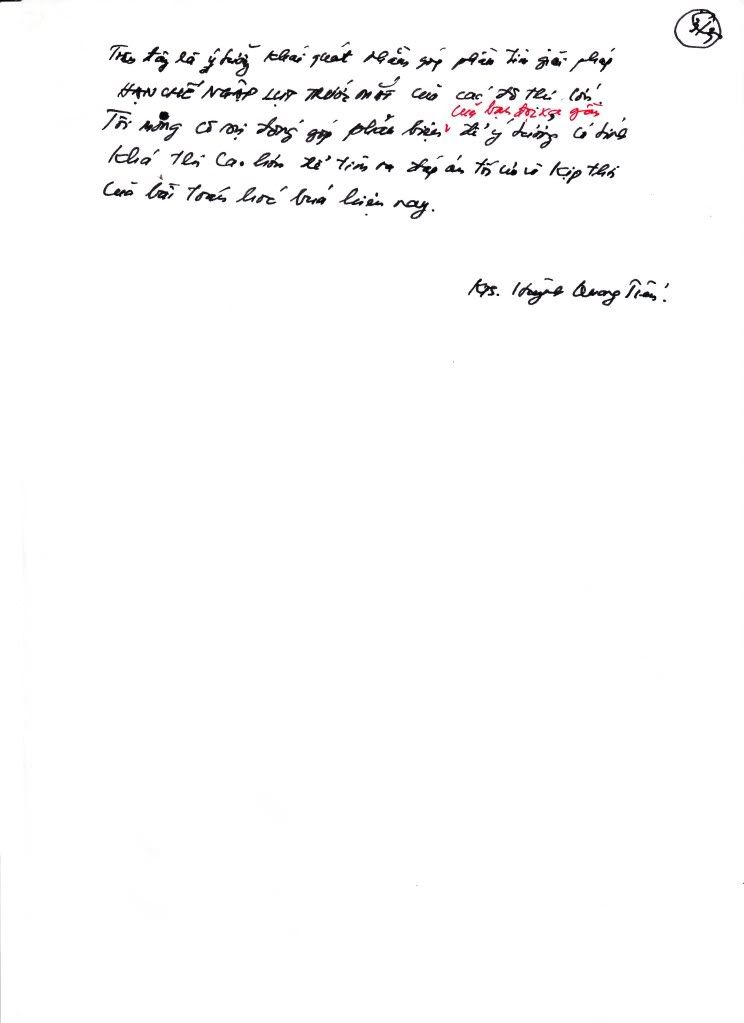 3/3
Trên đây là ý tưởng khái quát nhằm góp phần tìm giải pháp
HẠN CHẾ NGẬP LỤT TRƯỚC MẮT của các đô thị lớn
của bạn đọc xa gần
Tôi mong có sự đóng góp phản biện để ý tưởng có tính
khả thi cao hơn để tìm ra đáp án tối ưu và kịp thời
của bài toán hóc búa hiện nay.
Kts. Huỳnh Quang Tiên